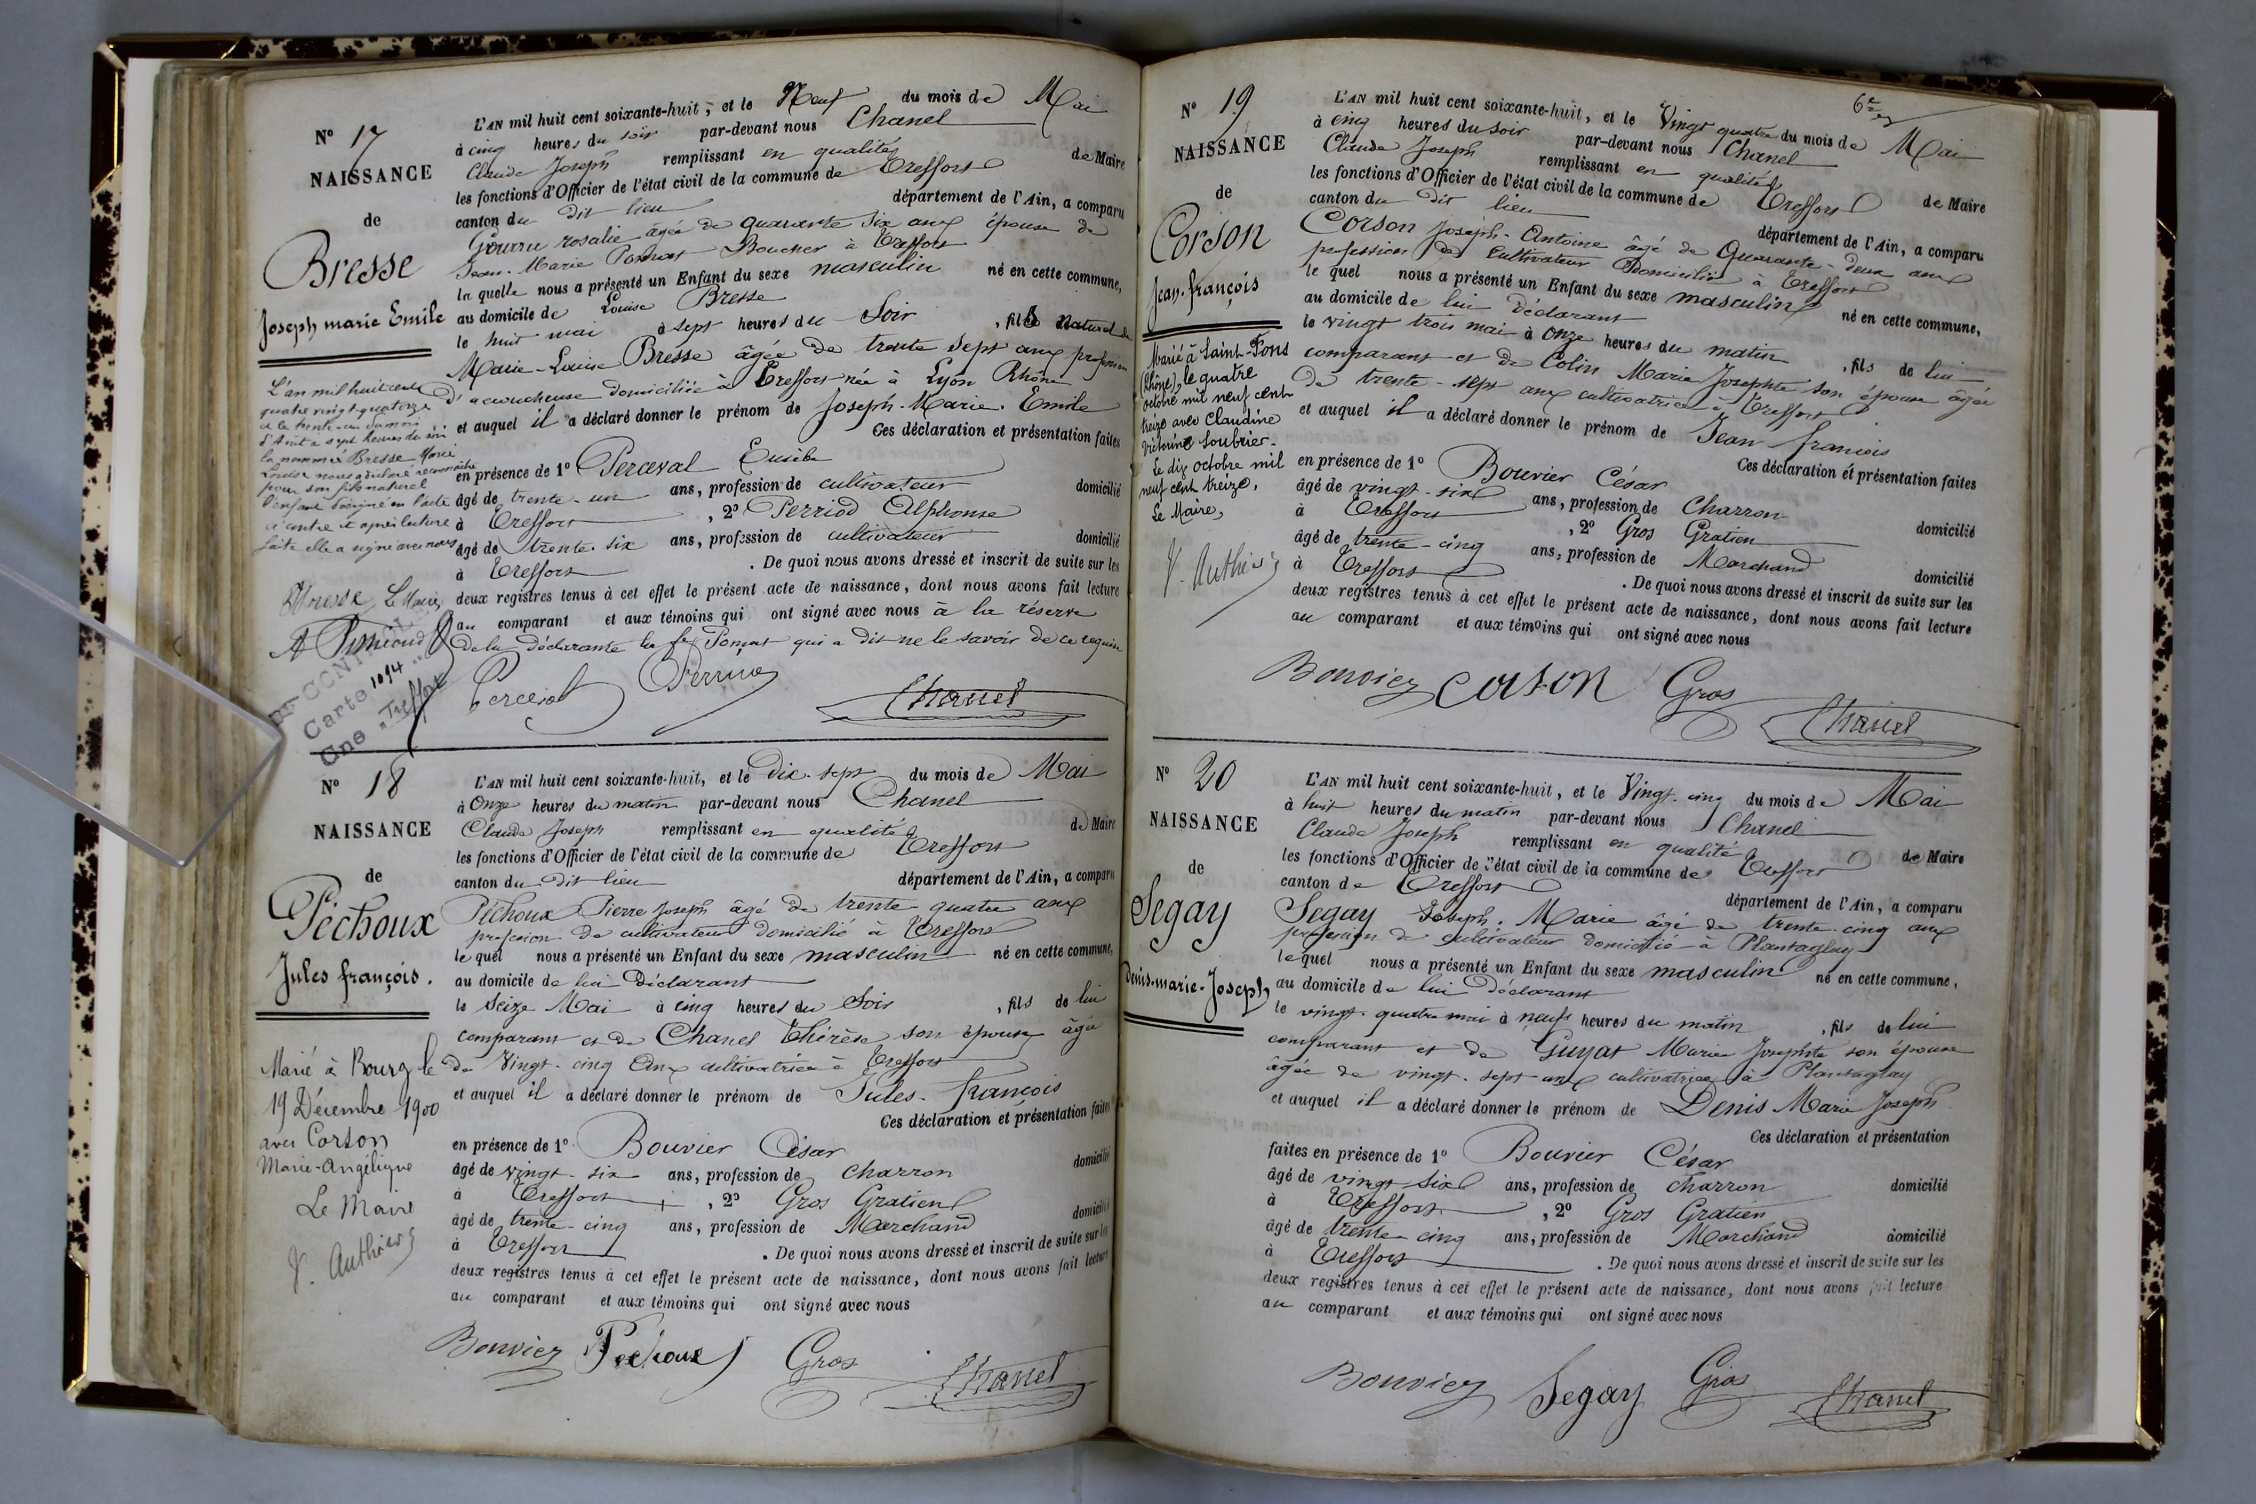 N° 17
NAISSANCE
de
Bresse
Joseph marie Emile
L'an mil huit cent
quatre vingt quatorze
et le trente-un du mois
d'Août à sept heures du soir
la nommée Bresse Marie
Louise nous a déclaré reconnaître
pour son fils naturel
l'enfant désigné en l'acte
ci contre et après lecture
faite elle a signé avec nous
Bresse Le Maire
L'AN mil huit cent soixante-huit, et le Neuf du mois de Mai
à cinq heures du soir par-devant nous Chanel
Claude Joseph remplissant en qualité de Maire
les fonctions d'Officier de l'état civil de la commune de Treffort
canton du dit lieu département de l'Ain, a comparu
rosalie âgée de quarante six ans épouse de
Jean-Marie Pomat Boucher à Treffort
la quelle nous a présenté un Enfant du sexe masculin né en cette commune,
au domicile de Louise Bresse
le huit mai à sept heures du Soir, fils Naturel de
Marie-Louise Bresse âgée de trente sept ans profession
d'accoucheuse domiciliée à Treffort née à Lyon Rhône
et auquel il a déclaré donner le prénom de Joseph-Marie-Emile
Ces déclaration et présentation faites
en présence de 1° Perceval Eusèbe
âgé de trente-un ans, profession de cultivateur domicilié
à Treffort, 2° Perriod Alphonse
âgé de trente-six ans, profession de cultivateur domicilié
à Treffort. De quoi nous avons dressé et inscrit de suite sur les
deux registres tenus à cet effet le présent acte de naissance, dont nous avons fait lecture
au comparant et aux témoins qui ont signé avec nous à la réserve
de la déclarante la fe Pomat qui a dit ne le savoir de ce requise
Perceval Perriod
Chanel
Carte 1094
Cne Treffort
N° 18
NAISSANCE
de
Péchoux
Jules françois.
Marié à Bourg le
19 Décembre 1900
avec Corson
Marie-Angélique
Le Maire
V. Authier
L'AN mil huit cent soixante-huit, et le Dix-sept du mois de Mai
à Onze heures du matin par-devant nous Chanel
Claude Joseph remplissant en qualité de Maire
les fonctions d'Officier de l'état civil de la commune de Treffort
canton du dit lieu département de l'Ain, a comparu
Péchoux Pierre Joseph âgé de trente quatre ans
profession de cultivateur domicilié à Treffort
le quel nous a présenté un Enfant du sexe masculin né en cette commune,
au domicile de lui Déclarant
le Seize Mai à cinq heures du Soir, fils de lui
comparant et de Chanel Thérèse son épouse âgée
de Vingt-cinq Ans cultivatrice à Treffort
et auquel il a déclaré donner le prénom de Jules-françois
Ces déclaration et présentation faites
en présence de 1° Bouvier César
âgé de vingt-six ans, profession de charron domicilié
à Treffort, 2° Gros Gratien
âgé de trente-cinq ans, profession de Marchand domicilié
à Treffort. De quoi nous avons dressé et inscrit de suite sur les
deux registres tenus à cet effet le présent acte de naissance, dont nous avons fait lecture
au comparant et aux témoins qui ont signé avec nous
Bouvier Pechoux Gros Chanel
6e
N° 19
NAISSANCE
de
Corson
Jean-françois
Marié à Saint-Fons
(Rhône), le quatre
octobre mil neuf cent
treize avec Claudine
Victorine Soubrier.
Le dix octobre mil
neuf cent treize,
Le Maire,
V. Authier
L'AN mil huit cent soixante-huit, et le Vingt quatre du mois de Mai
à cinq heures du soir par-devant nous Chanel
Claude Joseph remplissant en qualité de Maire
les fonctions d'Officier de l'état civil de la commune de Treffort
canton du dit lieu département de l'Ain, a comparu
Corson Joseph-Antoine âgé de Quarante-deux ans
profession de Cultivateur Domicilié à Treffort
le quel nous a présenté un Enfant du sexe masculin né en cette commune,
au domicile de lui Déclarant
le vingt trois mai à Onze heures du matin, fils de lui
comparant et de Colin Marie Josephte son épouse âgée
de trente-sept ans cultivatrice à Treffort
et auquel il a déclaré donner le prénom de Jean françois
Ces déclaration et présentation faites
en présence de 1° Bouvier César
âgé de vingt-six ans, profession de Charron domicilié
à Treffort, 2° Gros Gratien
âgé de trente-cinq ans, profession de Marchand domicilié
à Treffort. De quoi nous avons dressé et inscrit de suite sur les
deux registres tenus à cet effet le présent acte de naissance, dont nous avons fait lecture
au comparant et aux témoins qui ont signé avec nous
Bouvier corson Gros
Chanel
N° 20
NAISSANCE
de
Segay
Denis-marie-Joseph
L'AN mil huit cent soixante-huit, et le Vingt-cinq du mois de Mai
à huit heures du matin par-devant nous Chanel
Claude Joseph remplissant en qualité de Maire
les fonctions d'Officier de l'état civil de la commune de Treffort
canton de Treffort département de l'Ain, a comparu
Segay Joseph-Marie âgé de trente-cinq ans
profession de cultivateur domicilié à Plantaglay
le quel nous a présenté un Enfant du sexe masculin né en cette commune,
au domicile de lui Déclarant
le vingt-quatre mai à neuf heures du matin, fils de lui
comparant et de Guyat Marie Josephte son épouse
âgée de vingt-sept ans cultivatrice à Plantaglay
et auquel il a déclaré donner le prénom de Denis Marie Joseph
Ces déclaration et présentation
faites en présence de 1° Bouvier César
âgé de vingt six ans, profession de charron domicilié
à Treffort, 2° Gros Gratien
âgé de trente-cinq ans, profession de Marchand domicilié
à Treffort. De quoi nous avons dressé et inscrit de suite sur les
deux registres tenus à cet effet le présent acte de naissance, dont nous avons fait lecture
au comparant et aux témoins qui ont signé avec nous
Bouvier Segay Gros Chanel